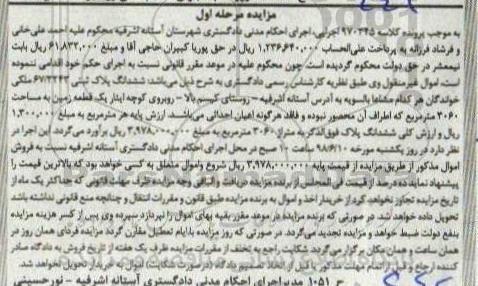 مزایده مرحله اول
به موجب پرونده کلاسه ۹۷۰۳۴۵ اجرایی، اجرای احکام مدنی دادگستری شهرستان آستانه اشرفیه محکوم علیه احمد علی خانی
و فرشاد فرزانه به پرداخت علی الحساب ۱،۲۳۶،۶۴۰،۰۰۰ ریال در حق پوریا کبیران حاجی آقا و مبلغ ۶۱،۸۳۲،۰۰۰ ریال بابت
نیمعشر در حق دولت محکوم گردیده است. چون محکوم علیه در موعد مقرر قانونی نسبت به اجرای حکم خود اقدامی ننموده
است، اموال غیرمنقول وی طبق نظریه کارشناس رسمی دادگستری به شرح ذیل می‌باشد: ششدانگ پلاک ثبتی ملکی
خواندگان هر کدام مشاعا بالسویه به آدرس آستانه اشرفیه - روستای کیسم بالا - روبروی کوچه ایثار یک قطعه زمین به مساحت
۳۰۶۰ مترمربع که اطراف آن محصور نبوده و فاقد هرگونه اعیان احداثی می‌باشد. ارزش پایه هر مترمربع به مبلغ ۱،۳۰۰،۰۰۰
ریال و ارزش کلی ششدانگ پلاک فوق‌الذکر به متراژ ۳۰۶۰ مترمربع به مبلغ ۳،۹۷۸،۰۰۰،۰۰۰ ریال برآورد می‌گردد. این اجرا در
نظر دارد در روز یکشنبه مورخه ۹۸/۶/۱۰ ساعت ۱۰ صبح در محل اجرای احکام مدنی دادگستری آستانه اشرفیه نسبت به فروش
اموال مذکور از طریق مزایده از قیمت پایه ۳،۹۷۸،۰۰۰،۰۰۰ ریال شروع و اموال متعلق به کسی خواهد بود که بالاترین قیمت را
پیشنهاد نماید ده درصد از قیمت فی المجلس از برنده مزایده دریافت و الباقی وجه مزایده ظرف مهلت قانونی که حداکثر یک ماه از
تاریخ مزایده تجاوز نخواهد کرد از خریدار اخذ و اموال به برنده مزایده طبق قانون و مقررات انتقال و چنانچه منع قانونی نداشته باشد
تحویل داده خواهد شد. در صورتی که برنده مزایده در موعد مقرر بقیه بهای اموال را نپردازد سپرده وی پس از کسر هزینه مزایده
بنفع دولت ضبط خواهد و مزایده تجدید می‌گردد. در صورتی که روز مزایده با ایام تعطیل مقارن گردد مزایده فردای همان روز در
همان ساعت و همان مکان برگزار می‌گردد شکایت راجع به تخلف از مقررات مزایده ظرف یک هفته از تاریخ فروش به دادگاه صادر
کننده ارجاع و قبل از اتمام مهلت مذکور یا قبل از اتخاذ تصمیم دادگاه (در صورت شکایت) اموال به خریدار تحویل نخواهد شد.
ح ۱۰۵۱ مدیر اجرای احکام مدنی دادگستری آستانه اشرفیه - نورحسینی